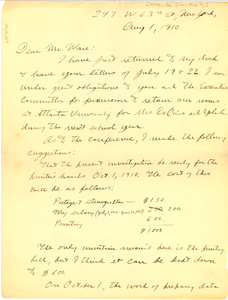 247 W 63rd St, New York,
Aug 1, 1910.
Dear Mr Ware:
I have just returned to my desk
& have your letters of July 19 & 22. I am
under great obligations to you and the Executive
Committee for permission to retain our rooms
at Atlanta University for Mrs. Du Bois and Yolande
during the next school year.
As to the conference, I made the following
suggestions:
That the present investigation be ready for the
printer's hands Oct 1, 1910. The cost of this
will be as follows:
Postage & stenographer — $150
My salary 200
Printing 600
$1000
The only uncertain amount here is the printing
bill, but I think it can be kept down
to $600
On October 1, the work of preparing data